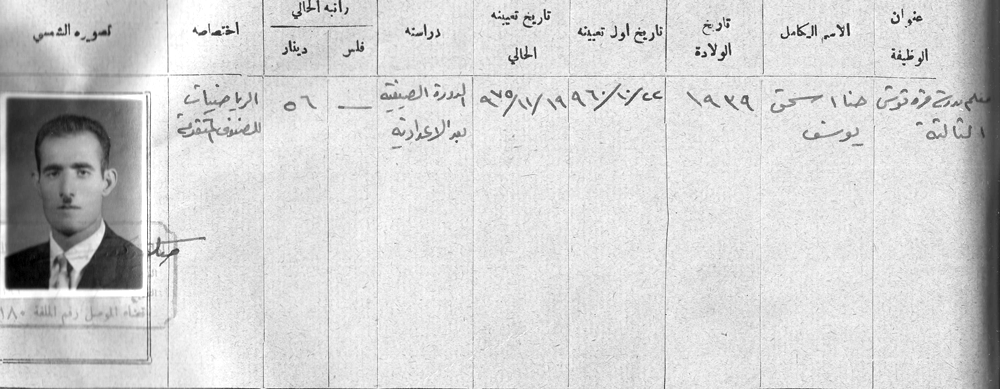 عنوان الوظيفة
الاسم الكامل
تاريخ الولادة
تاريخ اول تعيينه
تاريخ تعيينه الحالي
دراسته
راتبه الحالي
فلس
دينار
اختصاصه
تصويره الشمسي
معلم مدرسة قره قوش
الثالثة
حنا اسحق
يوسف
١٩٣٩
٩٦٠/١٠/٢٢
٩٧٥/١١/١٩
الدورة الصيفية
بعد الاعدادية
—
٥٦
الرياضيات
للصفوف المتقدمة
قضاء الموصل رقم الملفة ١٨٠